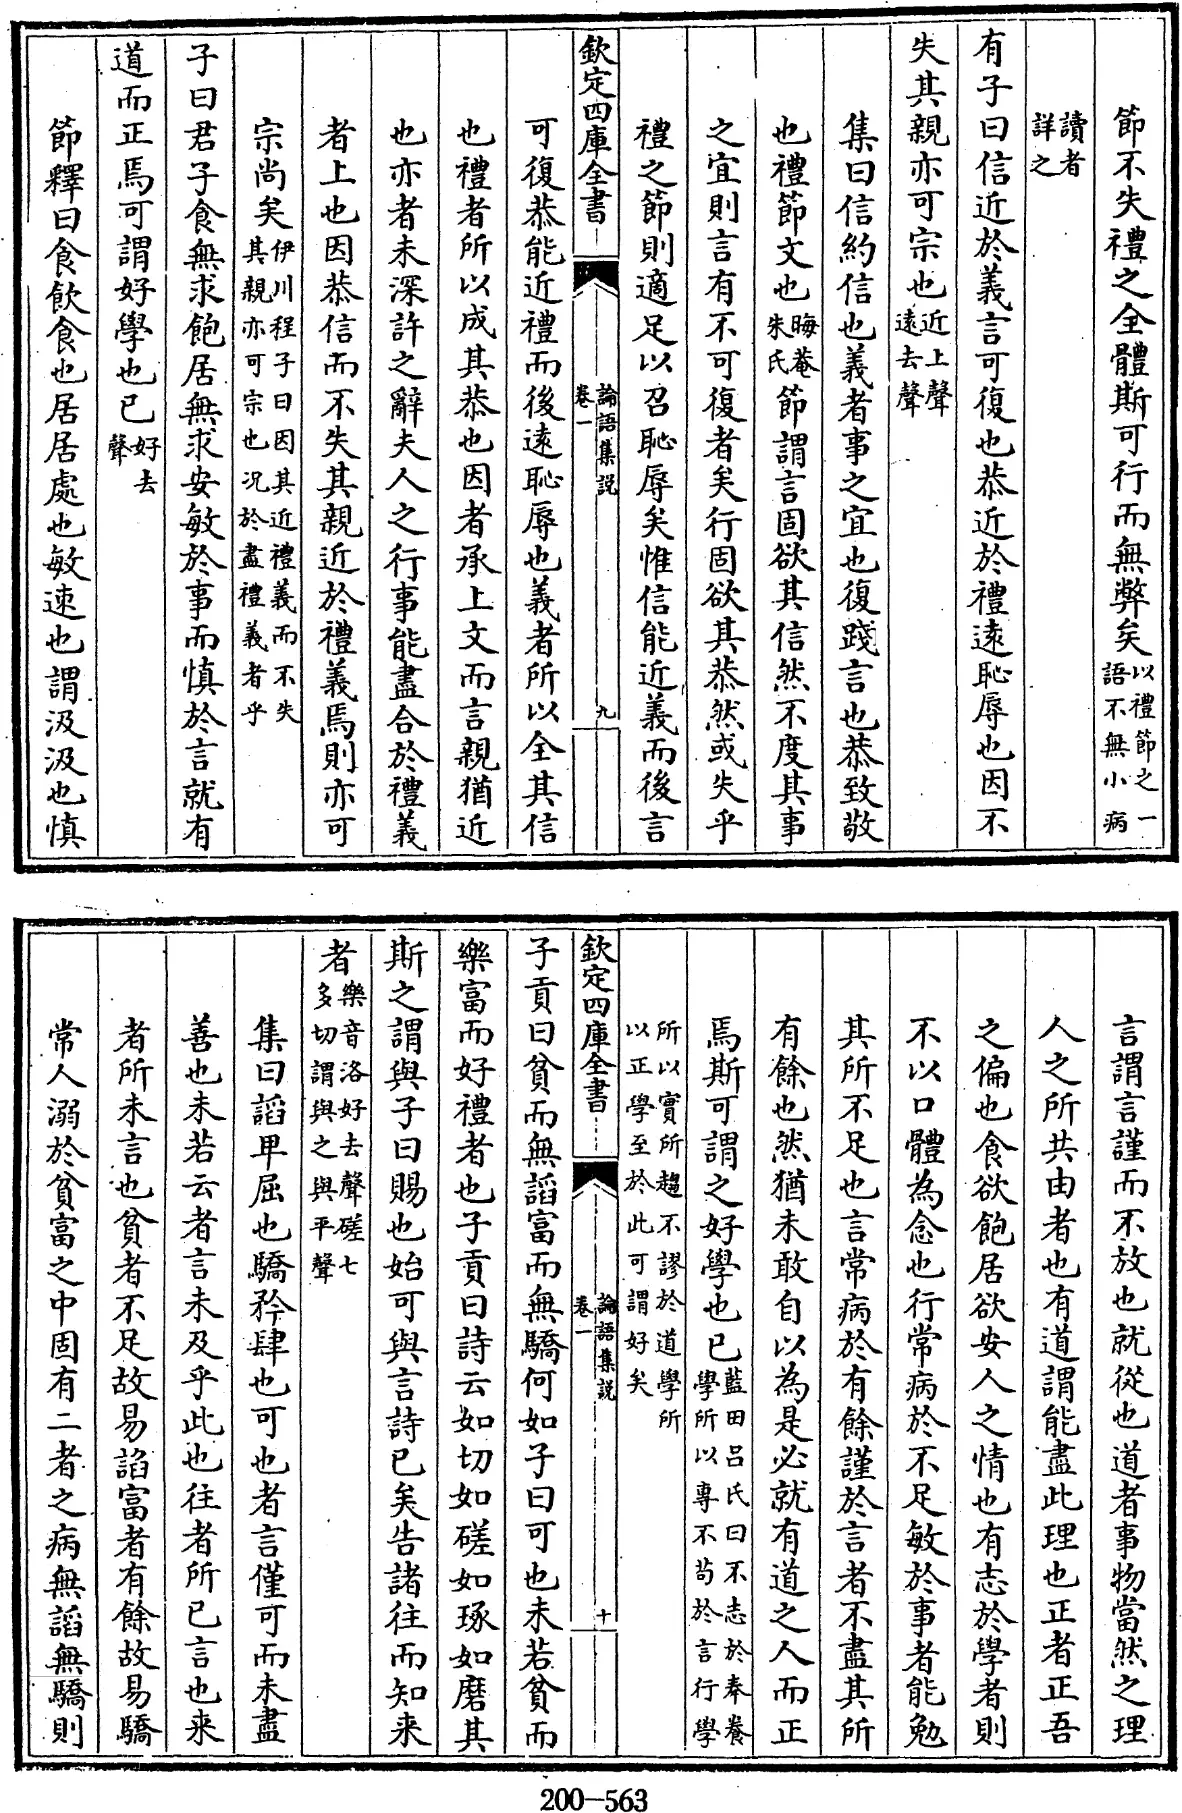 節不失禮之全體斯可行而無弊矣以禮節之一
語不無小病
讀者
詳之
有子曰信近於義言可復也恭近於禮遠恥辱也因不
失其親亦可宗也近上聲
遠去聲
集曰信約信也義者事之宜也復踐言也恭致敬
也禮節文也晦菴
朱氏節謂言固欲其信然不度其事
之宜則言有不可復者矣行固欲其恭然或失乎
禮之節則適足以召恥辱矣惟信能近義而後言
欽定四庫全書
論語集説
卷一
九
可復恭能近禮而後遠恥辱也義者所以全其信
也禮者所以成其恭也因者承上文而言親猶近
也亦者未深許之辭夫人之行事能盡合於禮義
者上也因恭信而不失其親近於禮義焉則亦可
宗尚矣伊川程子曰因其近禮義而不失
其親亦可宗也况於盡禮義者乎
子曰君子食無求飽居無求安敏於事而慎於言就有
道而正焉可謂好學也已好去
聲
節釋曰食飲食也居居處也敏速也謂汲汲也慎
言謂言謹而不放也就從也道者事物當然之理
人之所共由者也有道謂能盡此理也正者正吾
之偏也食欲飽居欲安人之情也有志於學者則
不以口體為念也行常病於不足敏於事者能勉
其所不足也言常病於有餘謹於言者不盡其所
有餘也然猶未敢自以為是必就有道之人而正
焉斯可謂之好學也已藍田吕氏曰不志於奉養
學所以專不苟於言行學
所以實所趨不謬於道學所
以正學至於此可謂好矣
欽定四庫全書
論語集説
卷一
十
子貢曰貧而無諂富而無驕何如子曰可也未若貧而
樂富而好禮者也子貢曰詩云如切如磋如琢如磨其
斯之謂與子曰賜也始可與言詩已矣告諸往而知来
者樂音洛好去聲磋七
多切謂與之與平聲
集曰諂卑屈也驕矜肆也可也者言僅可而未盡
善也未若云者言未及乎此也往者所已言也来
者所未言也貧者不足故易諂富者有餘故易驕
常人溺於貧富之中固有二者之病無諂無驕則
200-563